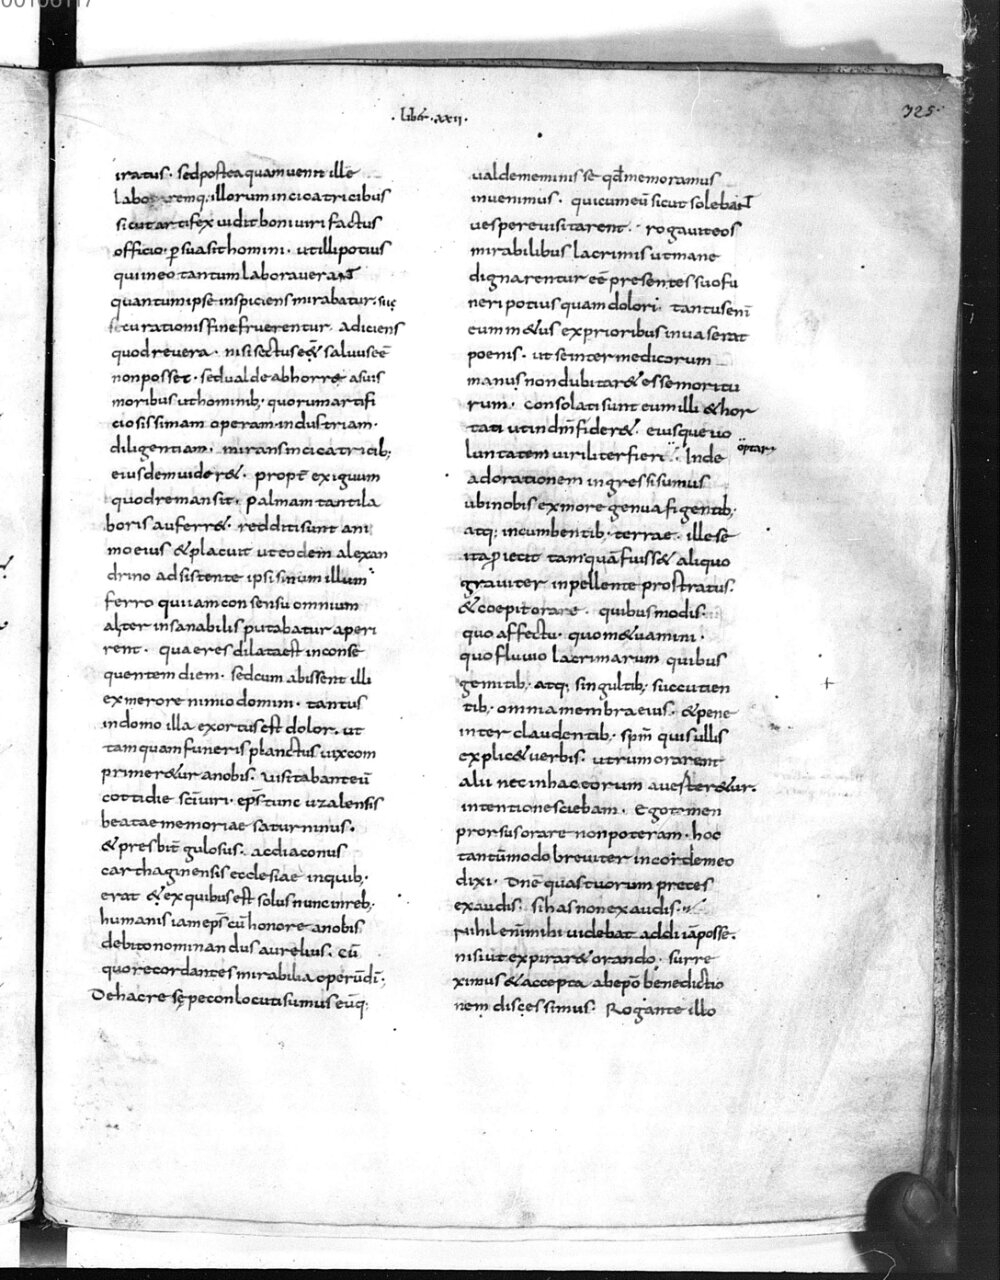 · liber · xxii ·
325·
iratus · sed postea quam venit ille
laboremq; illorum in cicatricibus
sicut artifex vidit boni viri factus
officio · persuasit homini · ut illi potius
qui in eo tantum laboraverant
quantum ipse inspiciens mirabatur · suę
curationis fine fruerentur · adiciens
quod revera · nisi sectus eēt salvus eē
non posset · sed valde abhorrere a suis
moribus ut hominib; quorum artifi
ciosissimam operam · industriam ·
diligentiam · mirans in cicatricib;
eiusdem videret · propt exiguum
quod remansit · palmam tanti la
boris auferret · redditi sunt ani
mo eius & placuit ut eodem alexan
drino adsistente ipsi sinum illum
ferro qui iam consensu omnium
aliter insanabilis putabatur aperi
rent · quae res dilata est in conse
quentem diem · sed cum abissent illi
ex merore nimio domini · tantus
in domo illa exortus est dolor · ut
tamquam funeris planctus vix com
primeretur a nobis · visitabant eū
cottidie sci viri · eps tunc uzalensis
beatae memoriae saturninus ·
& presbit gulosus · ac diaconus
carthaginensis ecclesiae in quib;
erat & ex quibus est solus nunc in reb;
humanis iam eps cū honore a nobis
debito nominandus aurelius · cū
quo recordantes mirabilia operū di ·
De hac re sępe conlocuti sumus eūq;
valde meminisse qd memoramus
invenimus · qui cum eū sicut solebant
vespere visitarent · rogavit eos
mirabilibus lacrimis ut mane
dignarentur eē presentes suo fu
neri potius quam dolori · tantus enī
eum metus ex prioribus invaserat
poenis · ut se inter medicorum
manus non dubitaret esse moritu
rum · consolati sunt eum illi & hor
tati ut in dm fideret · eiusque vo
luntatem viriliter fieri · Inde
optar
ad orationem ingressi sumus
ubi nobis ex more genua figentib;
atq; incumbentib; terrae · ille se
ita piecit tamquā fuisset aliquo
graviter inpellente prostratus ·
& coepit orare · quibus modis ·
quo affectu · quo metu animi ·
quo fluvio lacrimarum quibus
gemitib; atq; singultib; succutien
tib; omnia membra eius · & pene
intercludentib; spm quis ullis
explicet verbis · utrum orarent
alii nec in haec eorum averteretur ·
intentio nesciebam · Ego tamen
prorsus orare non poteram · hoc
tantūmodo breviter in corde meo
dixi · Dne quas tuorum preces
exaudis · si has non exaudis ·
Nihil enim mihi videbat addi iā posse ·
nisi ut expiraret orando · surre
ximus & accepta ab epo benedictio
nem discessimus · Rogante illo